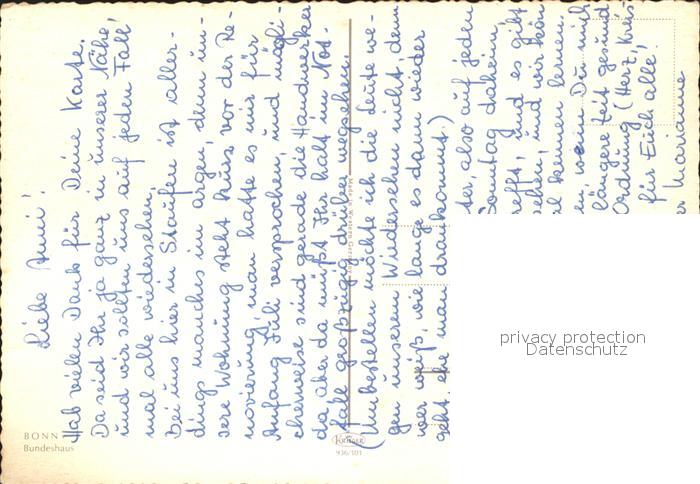 Liebe Anni!
Hab vielen Dank für Deine Karte.
Da seid Ihr ja ganz in unserer Nähe,
und wir sollten uns auf jeden Fall
mal alle wiedersehen.
Bei uns hier in Staufen ist aller-
dings manches im argen, denn un-
sere Wohnung steht kurz vor der Re-
novierung, man hatte es mir für
Anfang Juli versprochen, und mögli-
cherweise sind gerade die Handwerker
da, aber da müßt Ihr halt im Not-
falle großzügig drüber wegsehen.
(Umbestellen möchte ich die Leute we-
gen unserem Wiedersehen nicht, denn
wer weiß, wie lange es dann wieder
geht, ehe man drankommt.)
ter, also auf jeden
Sonntag daheim,
refft, und es gibt
sehen, und wir kön
al kennen lernen.
en, wenn Du mich
längere Zeit gesund
Ordnung (Herz, Krei-
für Euch alle!
er Marianne
BONN
Bundeshaus
KRÜGER
936/101
Made in Western Germany
privacy protection
Datenschutz